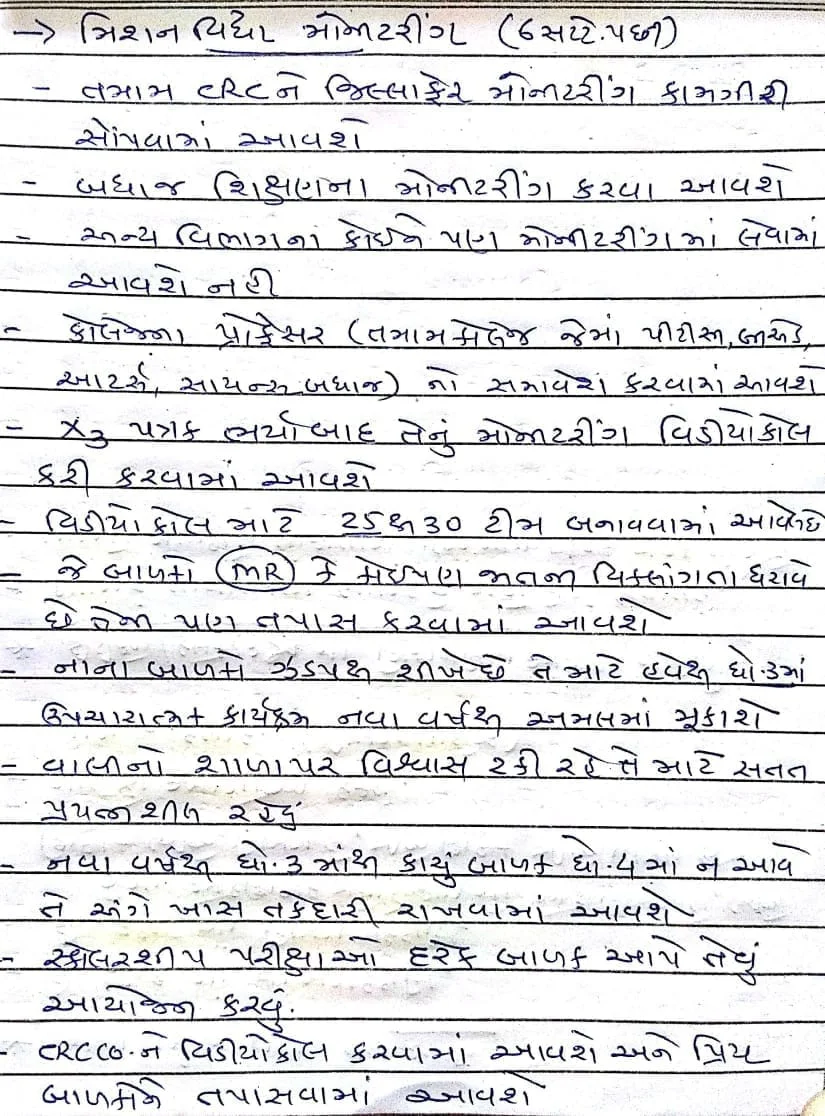 → મિશન વિદ્યા મોનીટરીંગ (6 સપ્ટે. પછી)
- તમામ CRC ને જિલ્લાફેર મોનીટરીંગ કામગીરી
સોંપવામાં આવશે
- બધાજ શિક્ષણના મોનીટરીંગ કરવા આવશે
- અન્ય વિભાગનાં કોઈને પણ મોનીટરીંગમાં લેવામાં
આવશે નહી
- કોલેજના પ્રોફેસર (તમામ કોલેજ જેમાં પીટીસી, બીએડ,
આર્ટસ, સાયન્સ બધાજ) નો સમાવેશ કરવામાં આવશે
- X3 પત્રક ભર્યા બાદ તેનું મોનીટરીંગ વિડીયોકોલ
કરી કરવામાં આવશે
- વિડીયો કોલ માટે 25 થી 30 ટીમ બનાવવામાં આવેલ છે
- જે બાળકો (MR) કે કોઈપણ જાતની વિકલાંગતા ધરાવે
છે તેની પણ તપાસ કરવામાં આવશે
- નાના બાળકો ઝડપથી શીખે છે તે માટે હવેથી ધો.3માં
ઉપચારાત્મક કાર્યક્રમ નવા વર્ષથી અમલમાં મૂકાશે
- વાલીનો શાળાપર વિશ્વાસ ટકી રહે તે માટે સતત
પ્રયત્નશીલ રહેવું
- નવા વર્ષથી ધો.3 માંથી કાચું બાળક ધો.4માં ન આવે
તે અંગે ખાસ તકેદારી રાખવામાં આવશે
- સ્કોલરશીપ પરીક્ષાઓ દરેક બાળક આપે તેવું
આયોજન કરવું.
- CRCCO. ને વિડીયોકોલ કરવામાં આવશે અને પ્રિય
બાળકોને તપાસવામાં આવશે